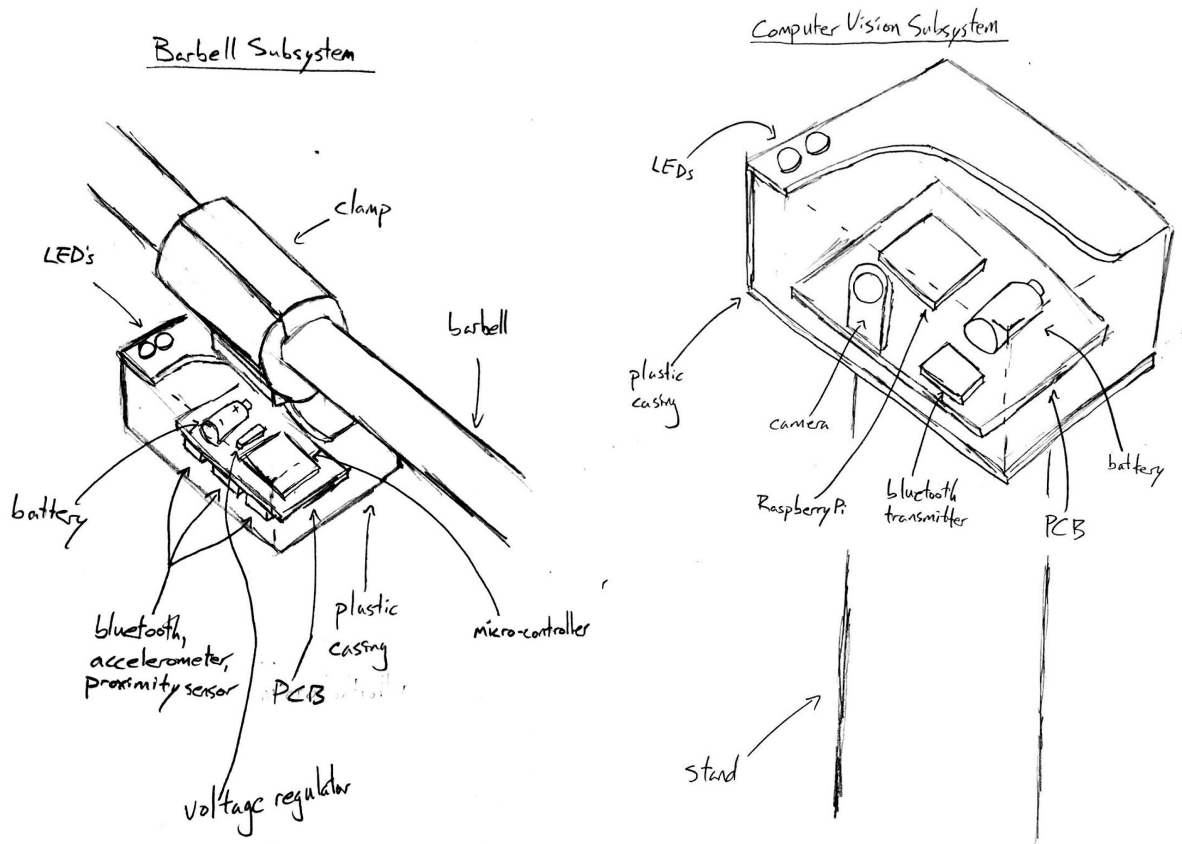 Barbell Subsystem
clamp
LED's
barbell
battery
bluetooth,
accelerometer,
proximity sensor
voltage regulator
PCB
plastic
casing
micro-controller
Computer Vision Subsystem
LEDs
plastic
casing
camera
Raspberry Pi
bluetooth
transmitter
PCB
battery
stand